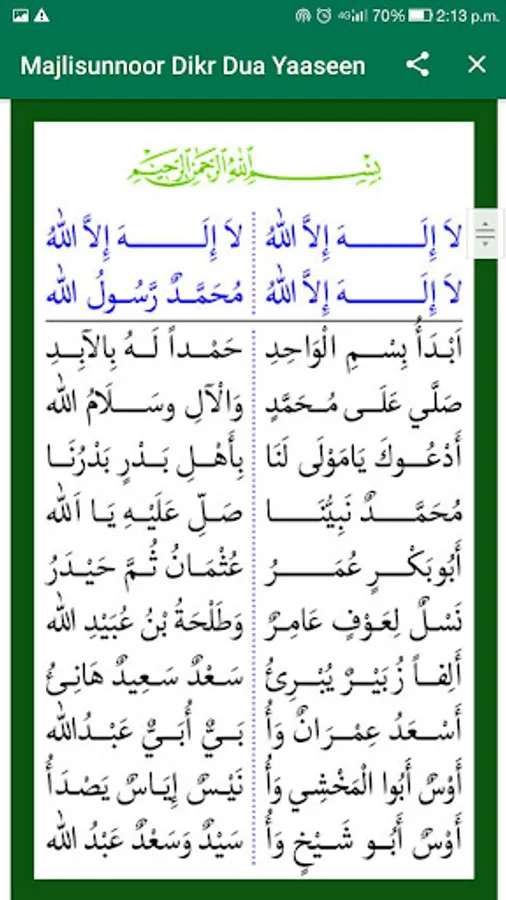 4G 70% 2:13 p.m.
Majlisunnoor Dikr Dua Yaaseen
بِسْمِ اللهِ الرَّحْمٰنِ الرَّحِيْمِ
لاَ إِلَـــــهَ إِلاَّ اللهُ لاَ إِلَـــــهَ إِلاَّ اللهُ
لاَ إِلَـــــهَ إِلاَّ اللهُ مُحَمَّدٌ رَّسُولُ الله
اَبْدَأُ بِسْمِ الْوَاحِدِ حَمْداً لَهُ بِالآبِدِ
صَلَّي عَلَى مُحَمَّدٍ وَالْآلِ وسَلَامُ الله
أَدْعُوكَ يَامَوْلَى لَنَا بِأَهْلِ بَدْرٍ بَدْرُنَا
مُحَمَّدٌ نَبِيُّنَا صَلِّ عَلَيْهِ يَا اَلله
أَبُوبَكْرٍ عُمَرُ عُثْمَانُ ثُمَّ حَيْدَرُ
نَسْلٌ لِعَوْفٍ عَامِرٌ وَطَلْحَةُ بْنُ عُبَيْدِ الله
أَلِفاً زُبَيْرٌ يُبْرِئُ سَعْدٌ سَعِيدٌ هَانِئُ
أَسْعَدُ عِمْرَانٌ وَأُ بَيٌّ أُبَيٌّ عَبْدُالله
أَوْسٌ أَبُوا الْمَخْشِي وَأُ نَيْسٌ إِيَاسٌ يَصْدَأُ
أَوْسٌ أَبُو شَيْخٍ وَأُ سَيْدٌ وَسَعْدٌ عَبْدُ الله